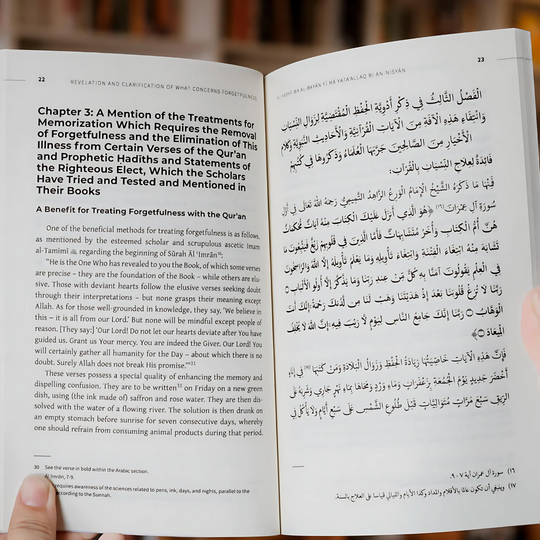 22
REVELATION AND CLARIFICATION OF WHAT CONCERNS FORGETFULNESS
Chapter 3: A Mention of the Treatments for
Memorization Which Requires the Removal
of Forgetfulness and the Elimination of This
Illness from Certain Verses of the Qur'an
and Prophetic Ḥadiths and Statements of
the Righteous Elect, Which the Scholars
Have Tried and Tested and Mentioned in
Their Books
A Benefit for Treating Forgetfulness with the Qur'an
One of the beneficial methods for treating forgetfulness is as follows,
as mentioned by the esteemed scholar and scrupulous ascetic Imam
al-Tamimi regarding the beginning of Sūrah Āl ʿImrān³⁰:
"He is the One Who has revealed to you the Book, of which some verses
are precise – they are the foundation of the Book – while others are elu-
sive. Those with deviant hearts follow the elusive verses seeking doubt
through their interpretations – but none grasps their meaning except
Allah. As for those well-grounded in knowledge, they say, 'We believe in
this – it is all from our Lord.' But none will be mindful except people of
reason. [They say:] 'Our Lord! Do not let our hearts deviate after You have
guided us. Grant us Your mercy. You are indeed the Giver. Our Lord! You
will certainly gather all humanity for the Day – about which there is no
doubt. Surely Allah does not break His promise.'"³¹
These verses possess a special quality of enhancing the memory and
dispelling confusion. They are to be written³² on Friday on a new green
dish, using (the ink made of) saffron and rose water. They are then dis-
solved with the water of a flowing river. The solution is then drunk on
an empty stomach before sunrise for seven consecutive days, whereby
one should refrain from consuming animal products during that period.
30 See the verse in bold within the Arabic section.
Āl ʿImrān, 7-9.
requires awareness of the sciences related to pens, ink, days, and nights, parallel to the
according to the Sunnah.
23
AL-BAYĀN FĪ MĀ YATAʿALLAQ BI AN-NISYĀN
الْفَصْلُ الثَّالِثُ فِي ذِكْرِ أَدْوِيَةِ الْحِفْظِ الْمُقْتَضِيَةِ لِزَوَالِ النِّسْيَانِ
وَانْتِفَاءِ هَذِهِ الْآفَةِ مِنَ الْآيَاتِ الْقُرْآنِيَّةِ وَالْأَحَادِيثِ النَّبَوِيَّةِ وَكَلَامِ
الْأَخْيَارِ مِنَ الصَّالِحِينَ جَرَّبَهَا الْعُلَمَاءُ وَذَكَرُوهَا فِي كُتُبِهِمْ
فَائِدَةٌ لِعِلَاجِ النِّسْيَانِ بِالْقُرْآنِ:
مَا ذَكَرَهُ الشَّيْخُ الْإِمَامُ الْوَرِعُ الزَّاهِدُ التَّمِيمِيُّ رَحِمَهُ اللهُ تَعَالَى فِي أَوَّلِ
سُورَةِ آلِ عِمْرَانَ(١٦) ﴿هُوَ الَّذِي أَنْزَلَ عَلَيْكَ الْكِتَابَ مِنْهُ آيَاتٌ مُحْكَمَاتٌ
هُنَّ أُمُّ الْكِتَابِ وَأُخَرُ مُتَشَابِهَاتٌ فَأَمَّا الَّذِينَ فِي قُلُوبِهِمْ زَيْغٌ فَيَتَّبِعُونَ مَا
تَشَابَهَ مِنْهُ ابْتِغَاءَ الْفِتْنَةِ وَابْتِغَاءَ تَأْوِيلِهِ وَمَا يَعْلَمُ تَأْوِيلَهُ إِلَّا اللهُ وَالرَّاسِخُونَ
فِي الْعِلْمِ يَقُولُونَ آمَنَّا بِهِ كُلٌّ مِنْ عِنْدِ رَبِّنَا وَمَا يَذَّكَّرُ إِلَّا أُولُو الْأَلْبَابِ
رَبَّنَا لَا تُزِغْ قُلُوبَنَا بَعْدَ إِذْ هَدَيْتَنَا وَهَبْ لَنَا مِنْ لَدُنْكَ رَحْمَةً إِنَّكَ أَنْتَ
الْوَهَّابُ رَبَّنَا إِنَّكَ جَامِعُ النَّاسِ لِيَوْمٍ لَا رَيْبَ فِيهِ إِنَّ اللهَ لَا يُخْلِفُ
الْمِيعَادَ﴾
فَإِنَّ هَذِهِ الْآيَاتِ خَاصِّيَّتُهَا زِيَادَةُ الْحِفْظِ وَزَوَالُ الْبَلَادَةِ وَمَنْ كَتَبَهَا(١٧) فِي
أَخْضَرَ جَدِيدٍ يَوْمَ الْجُمُعَةِ بِزَعْفَرَانٍ وَمَاءِ وَرْدٍ وَمَحَاهَا بِمَاءِ نَهْرٍ جَارِي وَشَرِبَهُ عَلَى
الرِّيقِ سَبْعَ مَرَّاتٍ مُتَوَالِيَاتٍ قَبْلَ طُلُوعِ الشَّمْسِ عَلَى سَبْعِ أَيَّامٍ وَلَا يَأْكُلُ فِي
(١٦) سورة آل عمران آية ٧-٩.
(١٧) وينبغي أن تكون عالما بالأقلام والمداد وكذا الأيام والليالي قياسا على العلاج بالسنة.